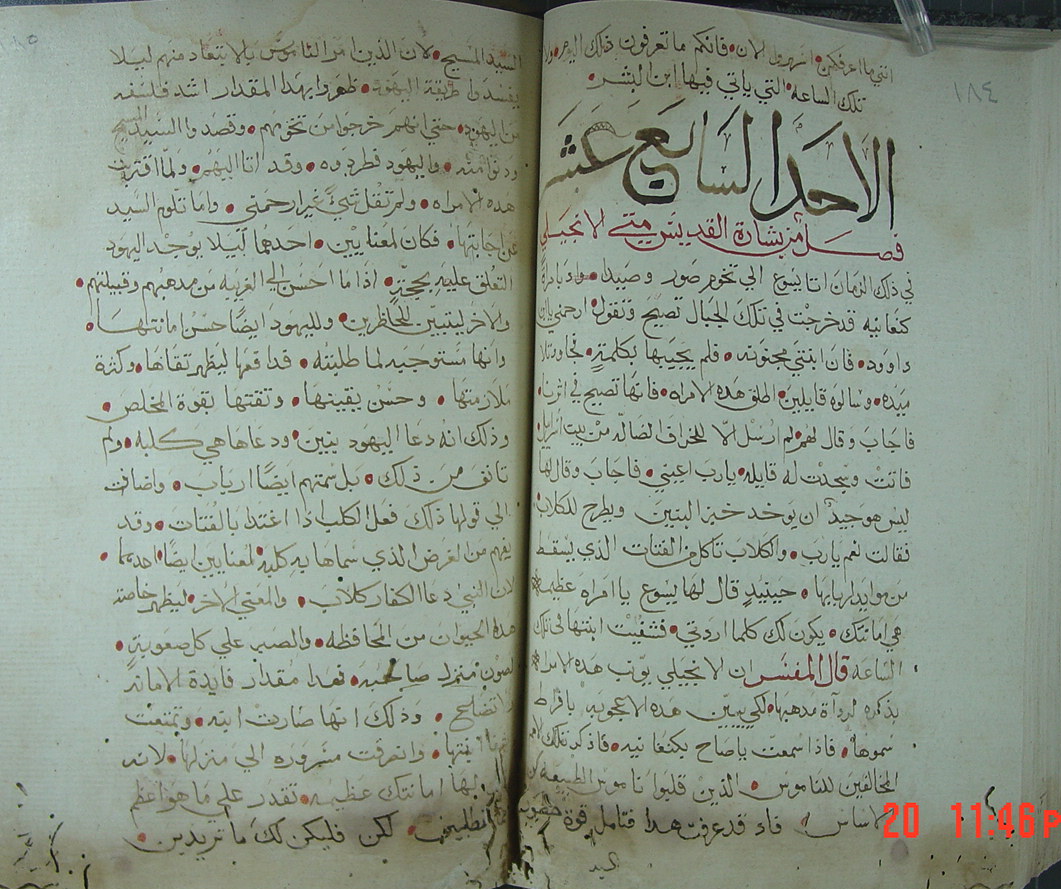 ١٨٤
انني ما اعرفكن اسهروا الان فانكم ما تعرفون ذلك اليوم ولا
تلك الساعه التي ياتي فيها ابن البشر
الاحد السابع عشر
فصل من بشارة القديس متي الانجيلي
في ذلك الزمان اتا يسوع الي تخوم صور وصيدا واذ بامراة
كنعانيه قد خرجت في تلك الجبال تصيح وتقول ارحمني يا ابن
داوود فان ابنتي مجنونه فلم يجيبها بكلمة فجاو تلا
ميده وسالوه قايلين اطلق هذه الامراه فانها تصيح في اثرنا
فاجاب وقال لهم لم ارسل الا للخراف الضاله من بيت اسراييل
فاتت وسجدت له قايله يارب اعيني فاجاب وقال لها
ليس هو جيد ان يوخد خبز البنين ويطرح للكلاب
فقالت نعم يارب والكلاب تاكل من الفتات الذي يسقط
من موايد اربابها حينيد قال لها يسوع يا امراه عظيمه
هي امانتك يكون لك كلما اردتي فشفيت ابنتها في تلك
الساعه قال المفسر ان الانجيلي يوب هده الامراه
بذكره لرداة مدهبها لكي يبين هده الاعجوبه بافراط
سموها فاذا سمعت ياصاح بكنعانيه فاذكر تلك الامم
المخالفين للناموس الذين قلبوا ناموس الطبيعه من
الاساس فاد قد عرفت هدا فتامل قوة حضور
السيد
١٨٥
السيد المسيح لان الدين امر الناموس بالابتعاد منهم ليلا
يفسدوا طريقة اليهود ظهروا بهدا المقدار اشد فلسفه
من اليهود حتي انهم خرجوا من تخومهم وقصدوا السيد المسيح
ودنوا منه واليهود فطردوه وقد اتا اليهم ولما اقتربت
هده الامراه ولم تقل شي غير ارحمني واما تلوم السيد
عن اجابتها فكان لمعنايين احدهما ليلا يوجد اليهود
التعلق عليه بحجة اذا ما احسن الي الغريبه من مدهبهم وقبيلتهم
والاخر ليتبين للحاظرين ولليهود ايضا حسن امانتها
وانها مستوجبه لما طلبته فدافعها ليظهر تقاها وكثرة
ملازمتها وحسن يقينها وثقتها بقوة المخلص
وذلك انه دعا اليهود بنين ودعاها هي كلبه ولم
تانف من ذلك بل سمتهم ايضا ارباب واضافت
الي قولها ذلك فعل الكلب اذا اغتدا بالفتات وقد
يفهم من الغرض الذي سماها به كلبه لمعنايين ايضا احدهما
لان النبي دعا الكفار كلاب والمعني الاخر ليظهر خاصة
هده الحيوان من المحافظه والصبر علي كل صعوبة
لصون منزل صاحبه فهدا مقدار فايدة الامانه
والتضرع وذلك انها صارت ابنه وتمتعت
وانصرفت مسروره الي منزلها لانه
لها امانتك عظيمه تقدر علي ما هو اعظم
تطلبين لكن فليكن لك ما تريدين
20 11:46 P